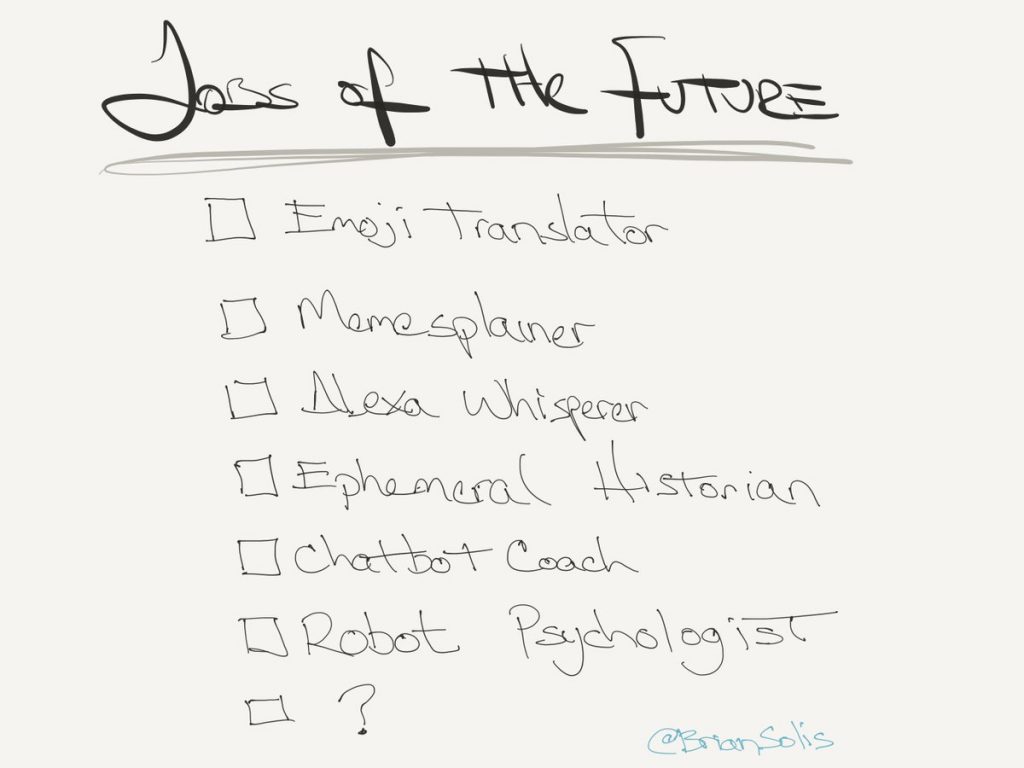 Jobs of the Future
Emoji Translator
Memesplainer
Alexa Whisperer
Ephemeral Historian
Chatbot Coach
Robot Psychologist
?
@BrianSolis